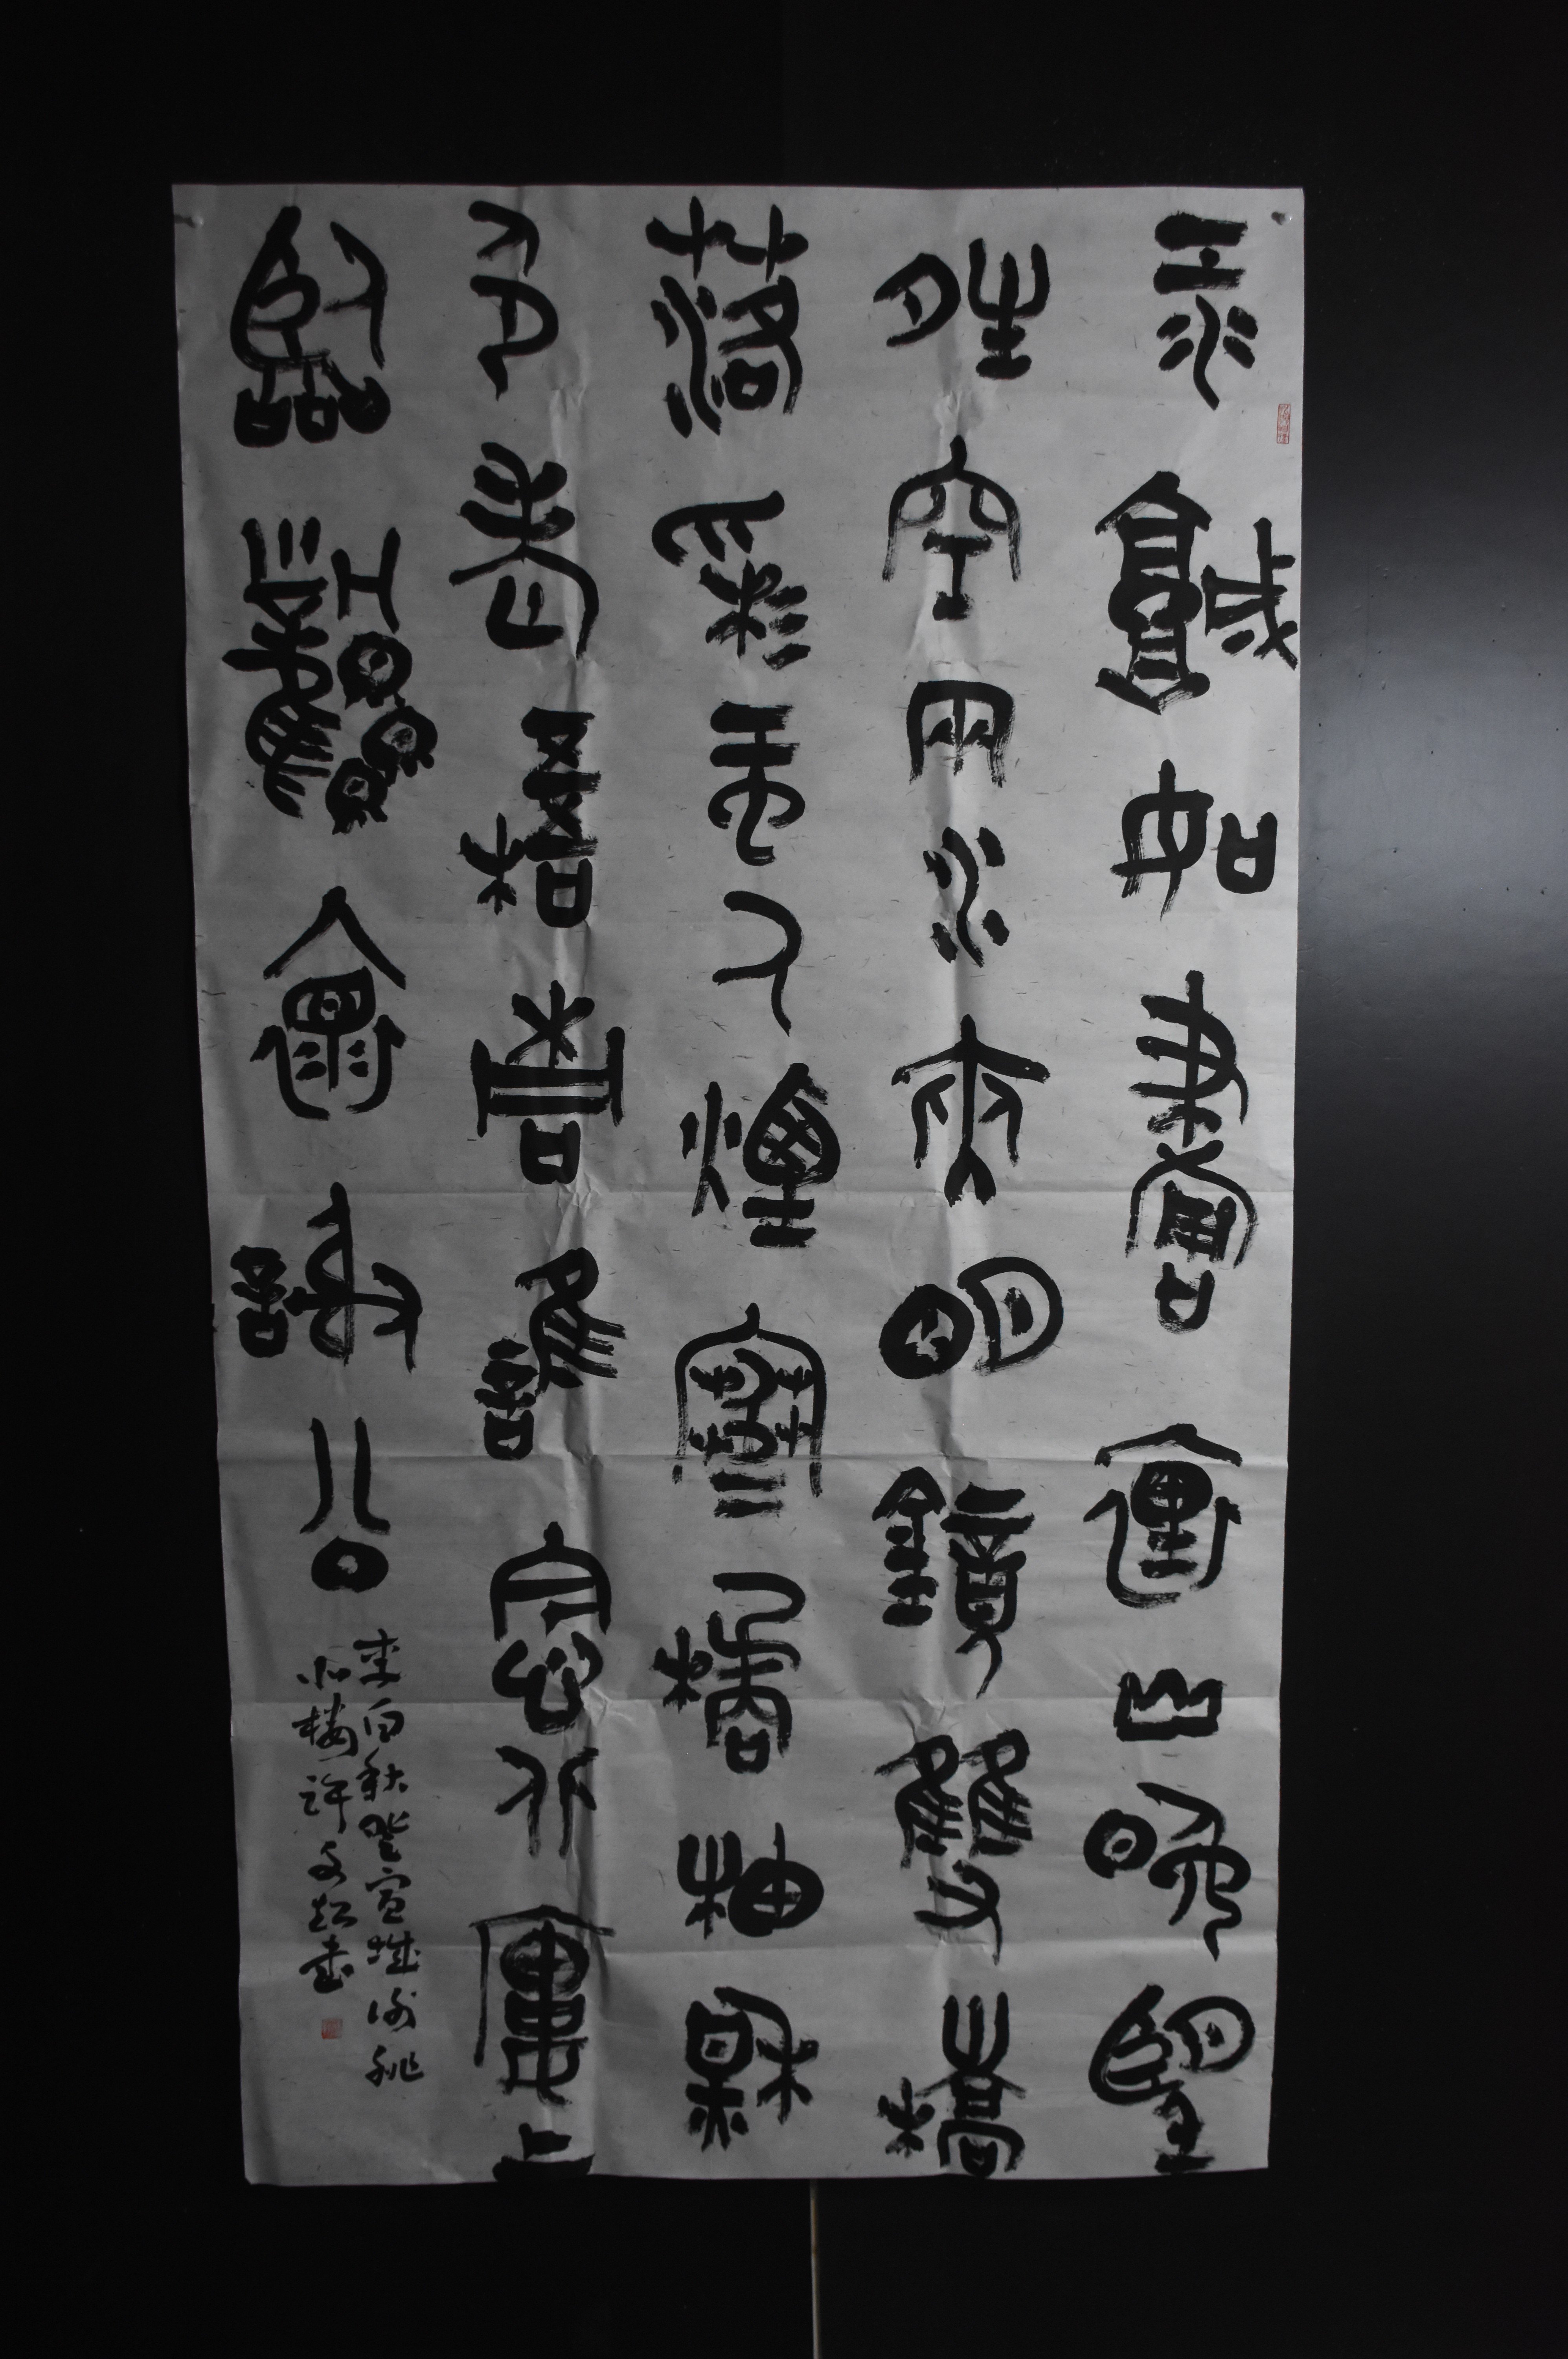 江城如畫裏山晚望
晴空兩水夾明鏡雙橋
落彩虹人煙寒橘柚秋
色老梧桐誰念北樓上
臨風懷謝公
李白秋登宣城謝朓
北樓許文書